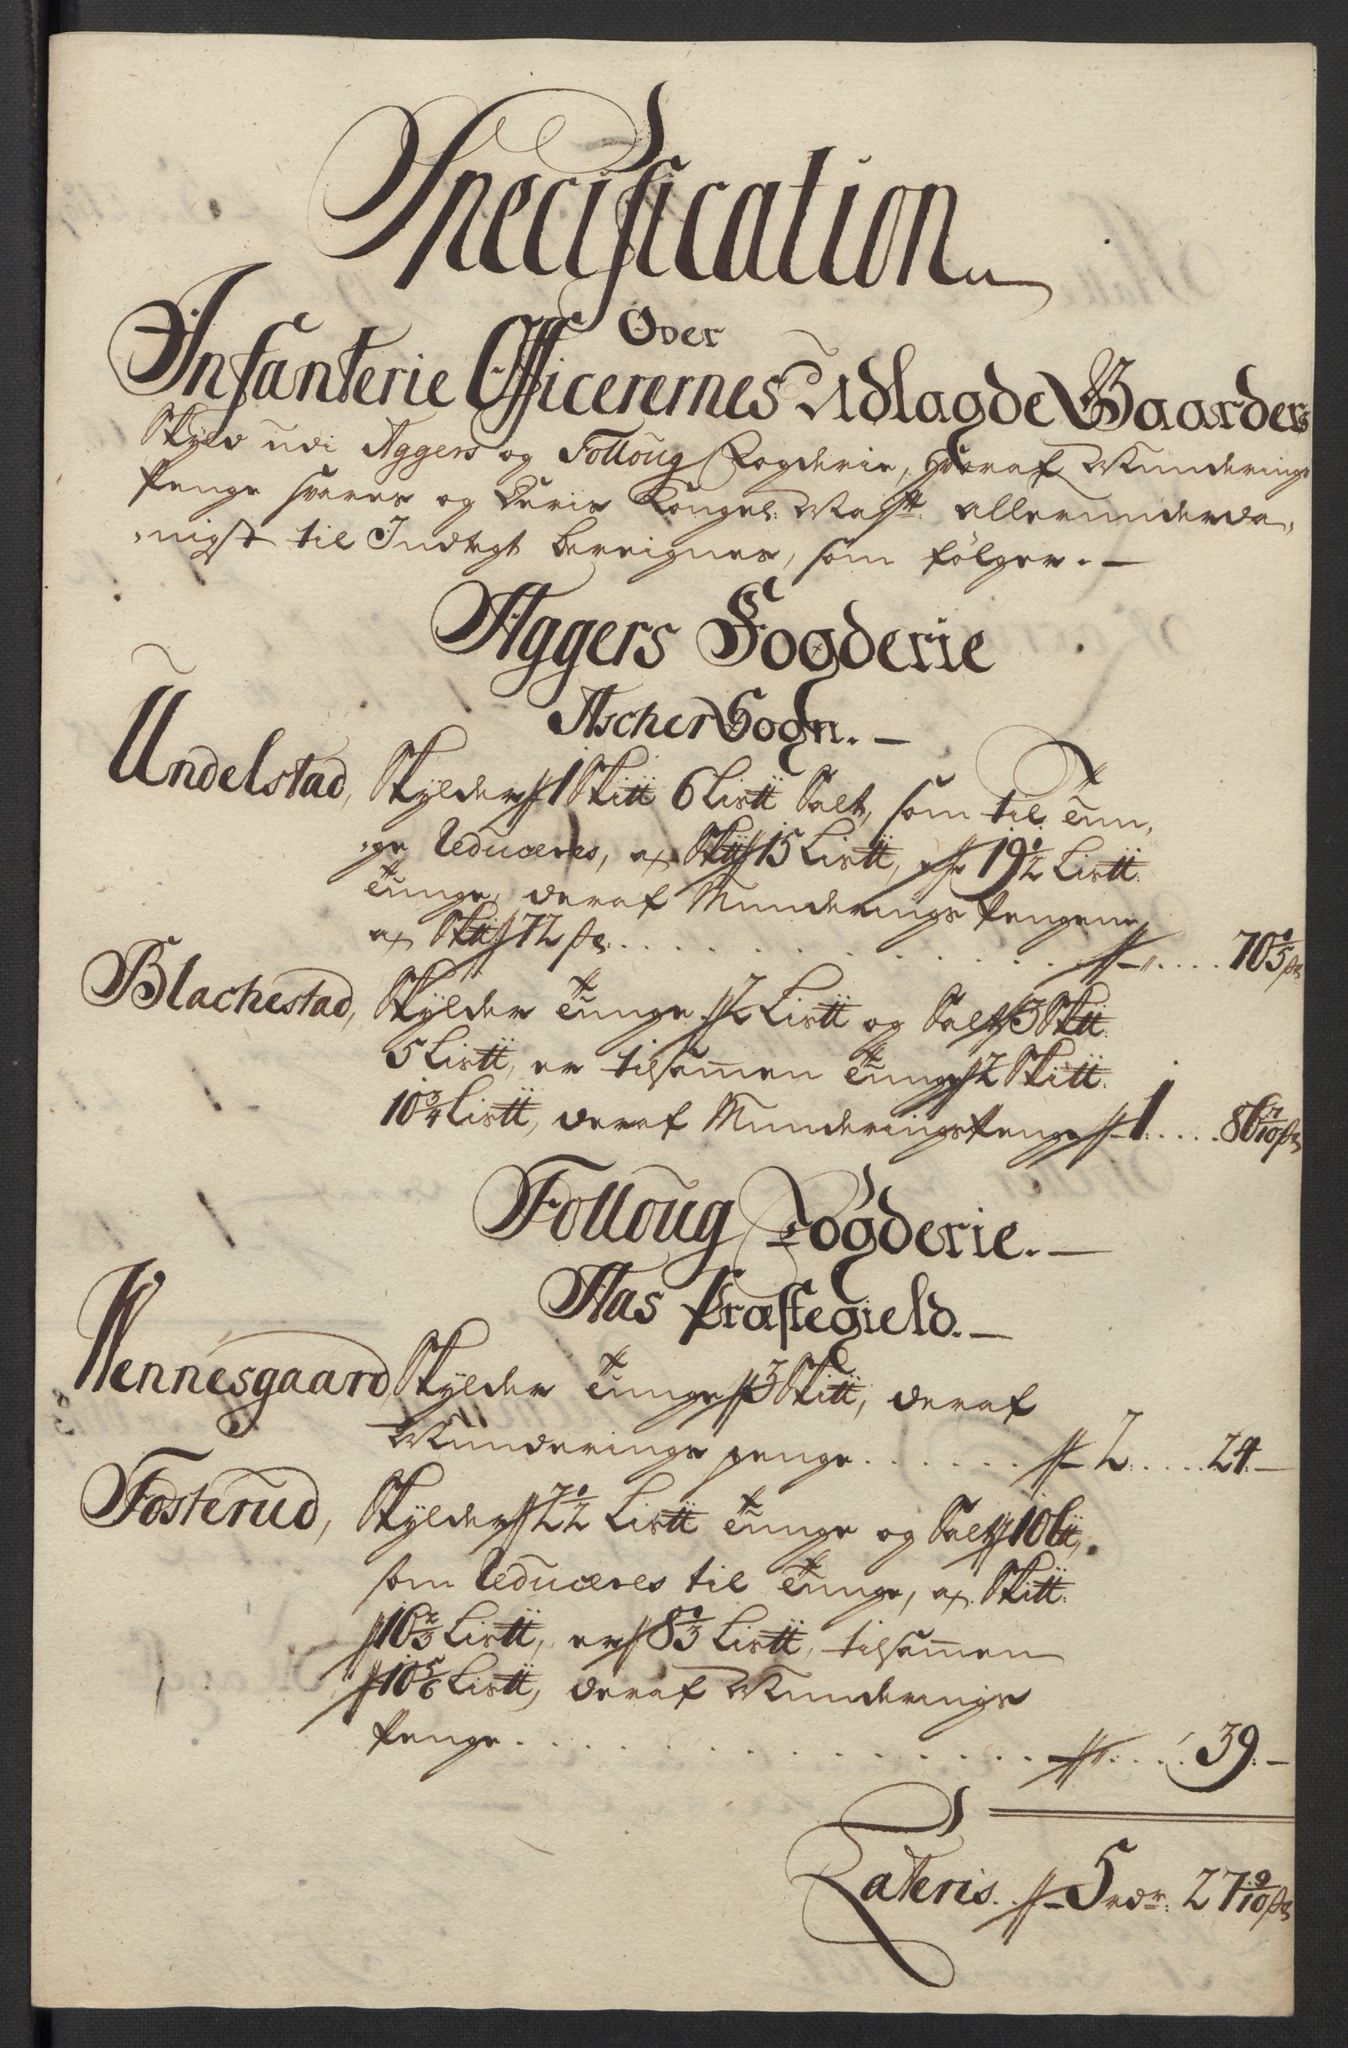 Specification
Over
Infanterie Officerernes Udlagde Gaarders
Skyld udi Aggers og Folloug Fogderie, hvoraf Munderings
Penge svares og Deris Kongel: Mayst: allerunderda„
„nigst til Indtegt bereignes, som følger. —
Aggers Fogderie
Ascher Sogn. —
Undelstad, Skylder 1 Skitt 6 Listt Salt, som til Tun„
„ge Reduceres, a Skitt 15 Listt, er 19½ Listt
Tunge, deraf Munderings Pengene
a Skitt 72 s. . . . . . . . . . . . . 70 1/5 s
Blachestad, Skylder Tunge 2 Listt og Salt 3 Skitt
5 Listt, er tilsamen Tunge 2 Skitt
10¾ Listt, deraf Munderings Penge 1 . . . . 86 7/10 s
Folloug Fogderie. —
Aas Præstegield. —
Wennesgaard, Skylder Tunge 3 Skitt, deraf
Munderings penge . . . . . . 2 . . . . 24. —
Fosterud, Skylder 2½ Listt Tunge og Salt 10 Ltt,
som Reduceres til Tunge, a Skitt
16⅔ Listt, er 8⅓ Listt, tilsamen
10⅚ Listt, deraf Munderings
Penge . . . . . . . . . . . . . . . . 39. —
Lateris . . 5 rdr: 27 9/10 s